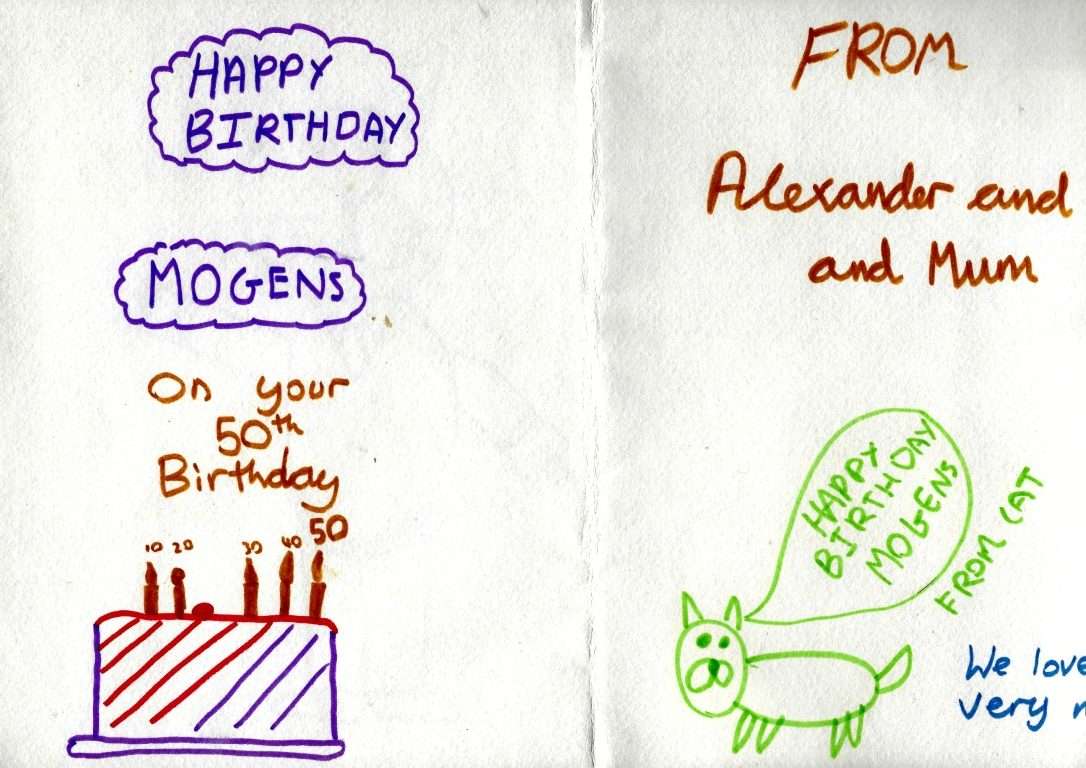 HAPPY
BIRTHDAY
MOGENS
On your
50th
Birthday
10 20 30 40 50
FROM
Alexander and
and Mum
HAPPY
BIRTHDAY
MOGENS
FROM CAT
We love
very